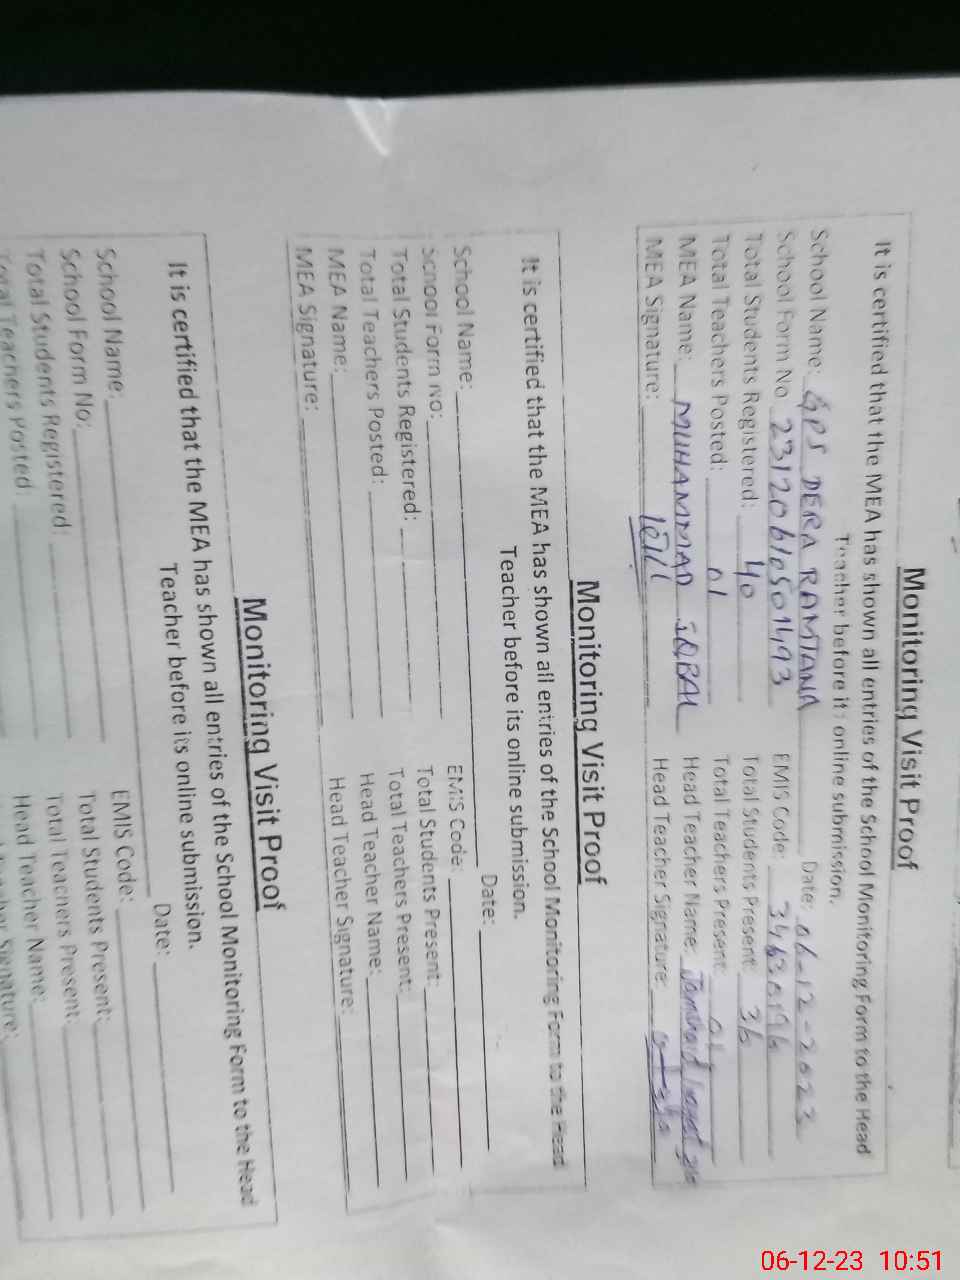 Monitoring Visit Proof
It is certified that the MEA has shown all entries of the School Monitoring Form to the Head
Teacher before its online submission.
School Name: GPS DERA RAMIANA Date: 06-12-2023
School Form No 23120610501493 EMIS Code: 34630196
Total Students Registered: 40 Total Students Present: 36
Total Teachers Posted: 01 Total Teachers Present: 01
MEA Name: MUHAMMAD IQBAL Head Teacher Name: Jamshaid
MEA Signature: Head Teacher Signature:
Monitoring Visit Proof
It is certified that the MEA has shown all entries of the School Monitoring Form to the Head
Teacher before its online submission.
School Name: Date:
School Form No: EMIS Code:
Total Students Registered: Total Students Present:
Total Teachers Posted: Total Teachers Present:
MEA Name: Head Teacher Name:
MEA Signature: Head Teacher Signature:
Monitoring Visit Proof
It is certified that the MEA has shown all entries of the School Monitoring Form to the Head
Teacher before its online submission.
School Name: Date:
School Form No: EMIS Code:
Total Students Registered: Total Students Present:
Total Teachers Posted: Total Teachers Present:
Head Teacher Name:
06-12-23 10:51